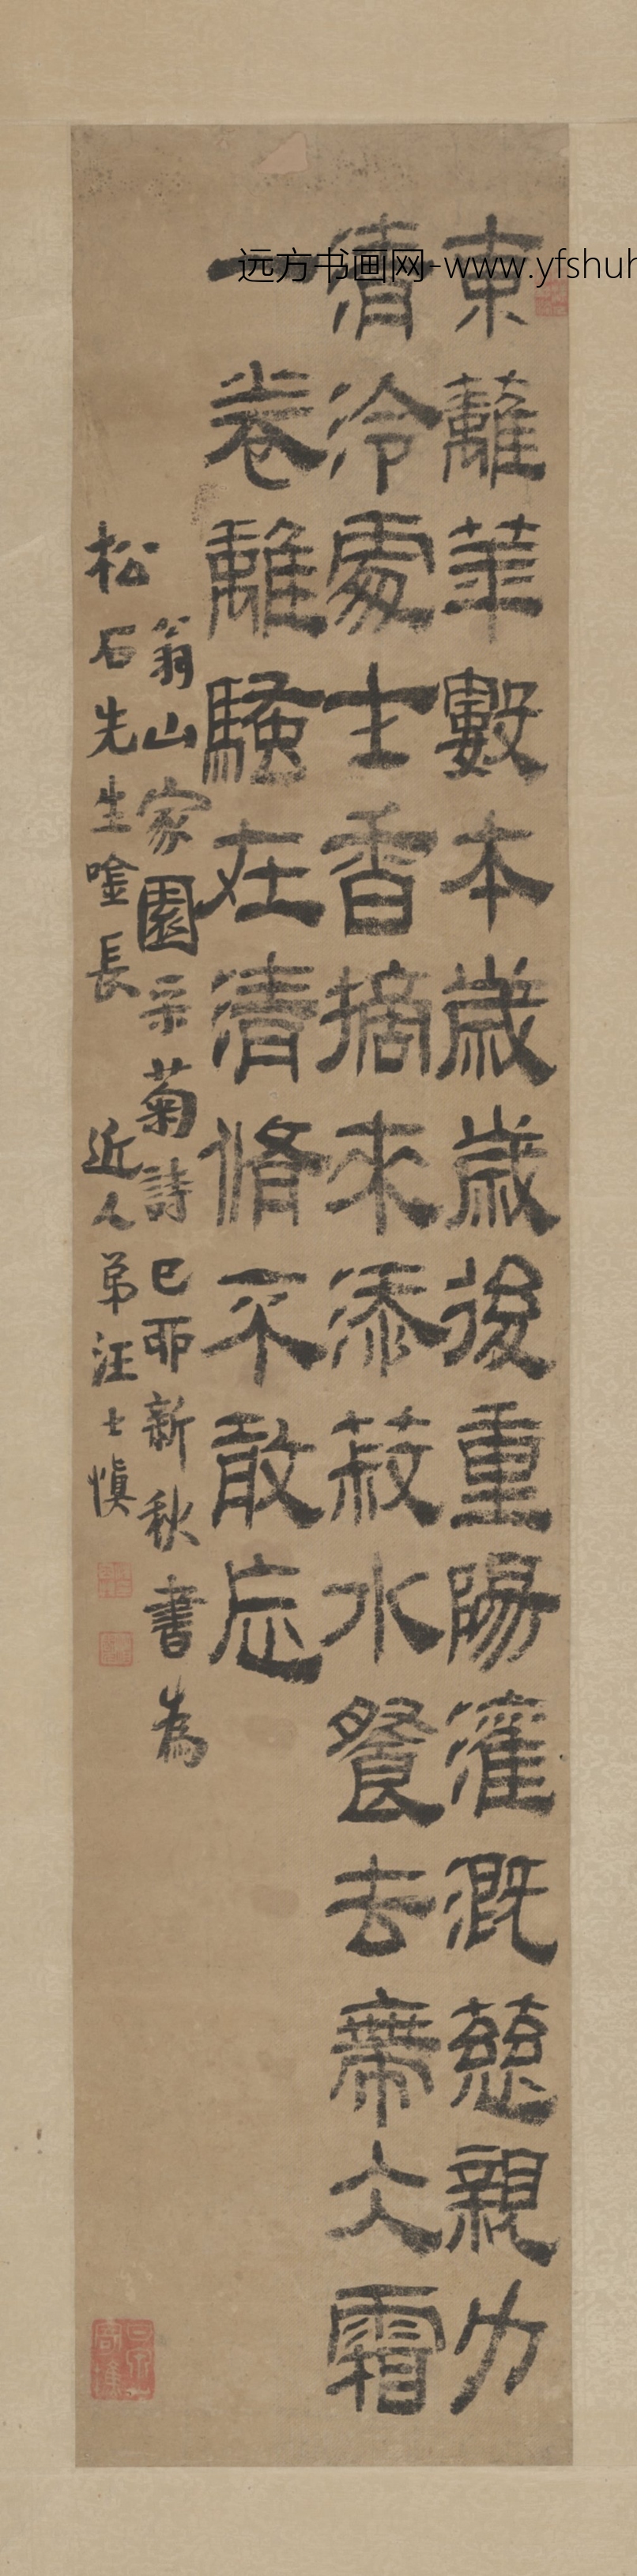 東蘺華數本歲歲後重陽灌溉慈親力
清泠處士香摘來添菽水餐去席大霜
一卷離騷在清脩不敢忘
翁山家園采菊詩己卯新秋書為
松石先生唫長 近人弟汪士慎
远方书画网-www.yfshuh